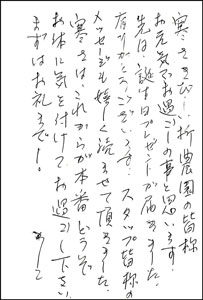 寒さきびしい折農園の皆様
お元気でお過ごしの事と思います。
先日、誕生日プレゼントが届きました。
有りがとうございます。スタッフ皆様の
メッセージも嬉しく読ませて頂きました。
寒さは、これからが本番どうぞ
お体に気を付けてお過ごし下さい。
まずはお礼まで!